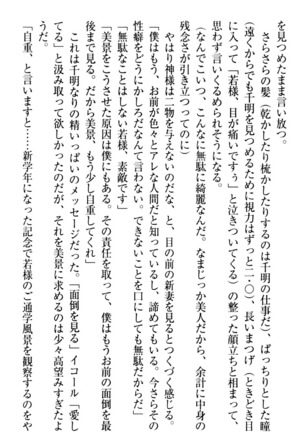 を見つめたまま言い放つ。
　さらさらの髪（乾かしたり梳かしたりするのは千明の仕事だ）、ぱっちりとした瞳
（遠くからでも千明を見つめるために視力はずっと二・〇）、長いまつげ（ときどき目
に入って「若様、目が痛いですぅ」と泣きついてくる）の整った顔立ちと相まって、
思わず言いくるめられそうになる。
（なんでこいつ、こんなに無駄に綺麗なんだ。なまじっか美人だから、余計に中身の
残念さが引き立つってのに）
　やはり神様は二物を与えないのだな、と、目の前の新妻を見るとつくづく感じる。
「僕はもう、お前が色々とアレな人間だと知っているし、諦めてもいる。今さらその
性癖をどうにかしろだなんて言わない。できないことを口にしても無駄だからだ」
「無駄なことはしない若様、素敵です」
「美景をこうさせた原因は僕にもある。その責任を取って、僕はもうお前の面倒を最
後まで見る。だから美景、もう少し自重してくれ」
　これは千明なりの精いっぱいのメッセージだった。「面倒を見る」イコール「愛し
てる」と汲み取って欲しかったのだが、それを美景に求めるのは少々高望みすぎたよ
「自重、と言いますと……新学年になった記念で若様のご通学風景を観察するのをや